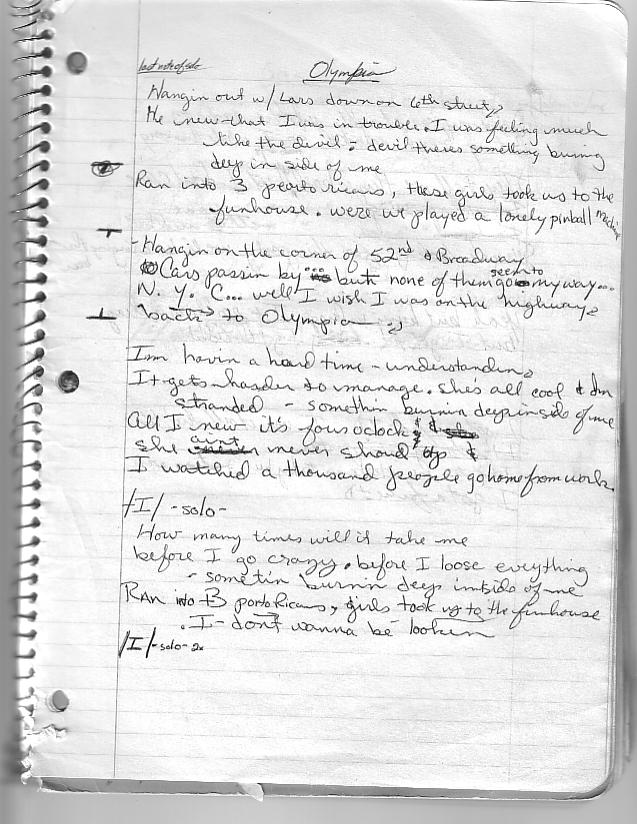 last note of solo
Olympia
Hangin out w/ Lars down on 6th street,
He new that I was in trouble. I was feeling much
like the devil - devil theres something burning
deep in side of me
Ran into 3 pearto ricans, these girls took us to the
funhouse. were we played a lonely pinball machine
- Hangin on the corner of 52nd & Broadway
Cars passin by ... but none of them seem to go my way...
N. Y. C... well I wish I was on the highway
back to Olympia
Im havin a hard time - understanding
It gets harder to manage. she's all cool & Im
stranded - somethin burnin deep inside of me
All I new it's fouroclock &
she aint never shoud up &
I watched a thousand people go home from work
/I/ - solo -
How many times will it take me
before I go crazy. before I loose everything
- sometin burnin deep inside of me
RAN into 3 portoRicans, girls took us to the funhouse
. I - don't wanna be lookin
/I/ - solo - 2x